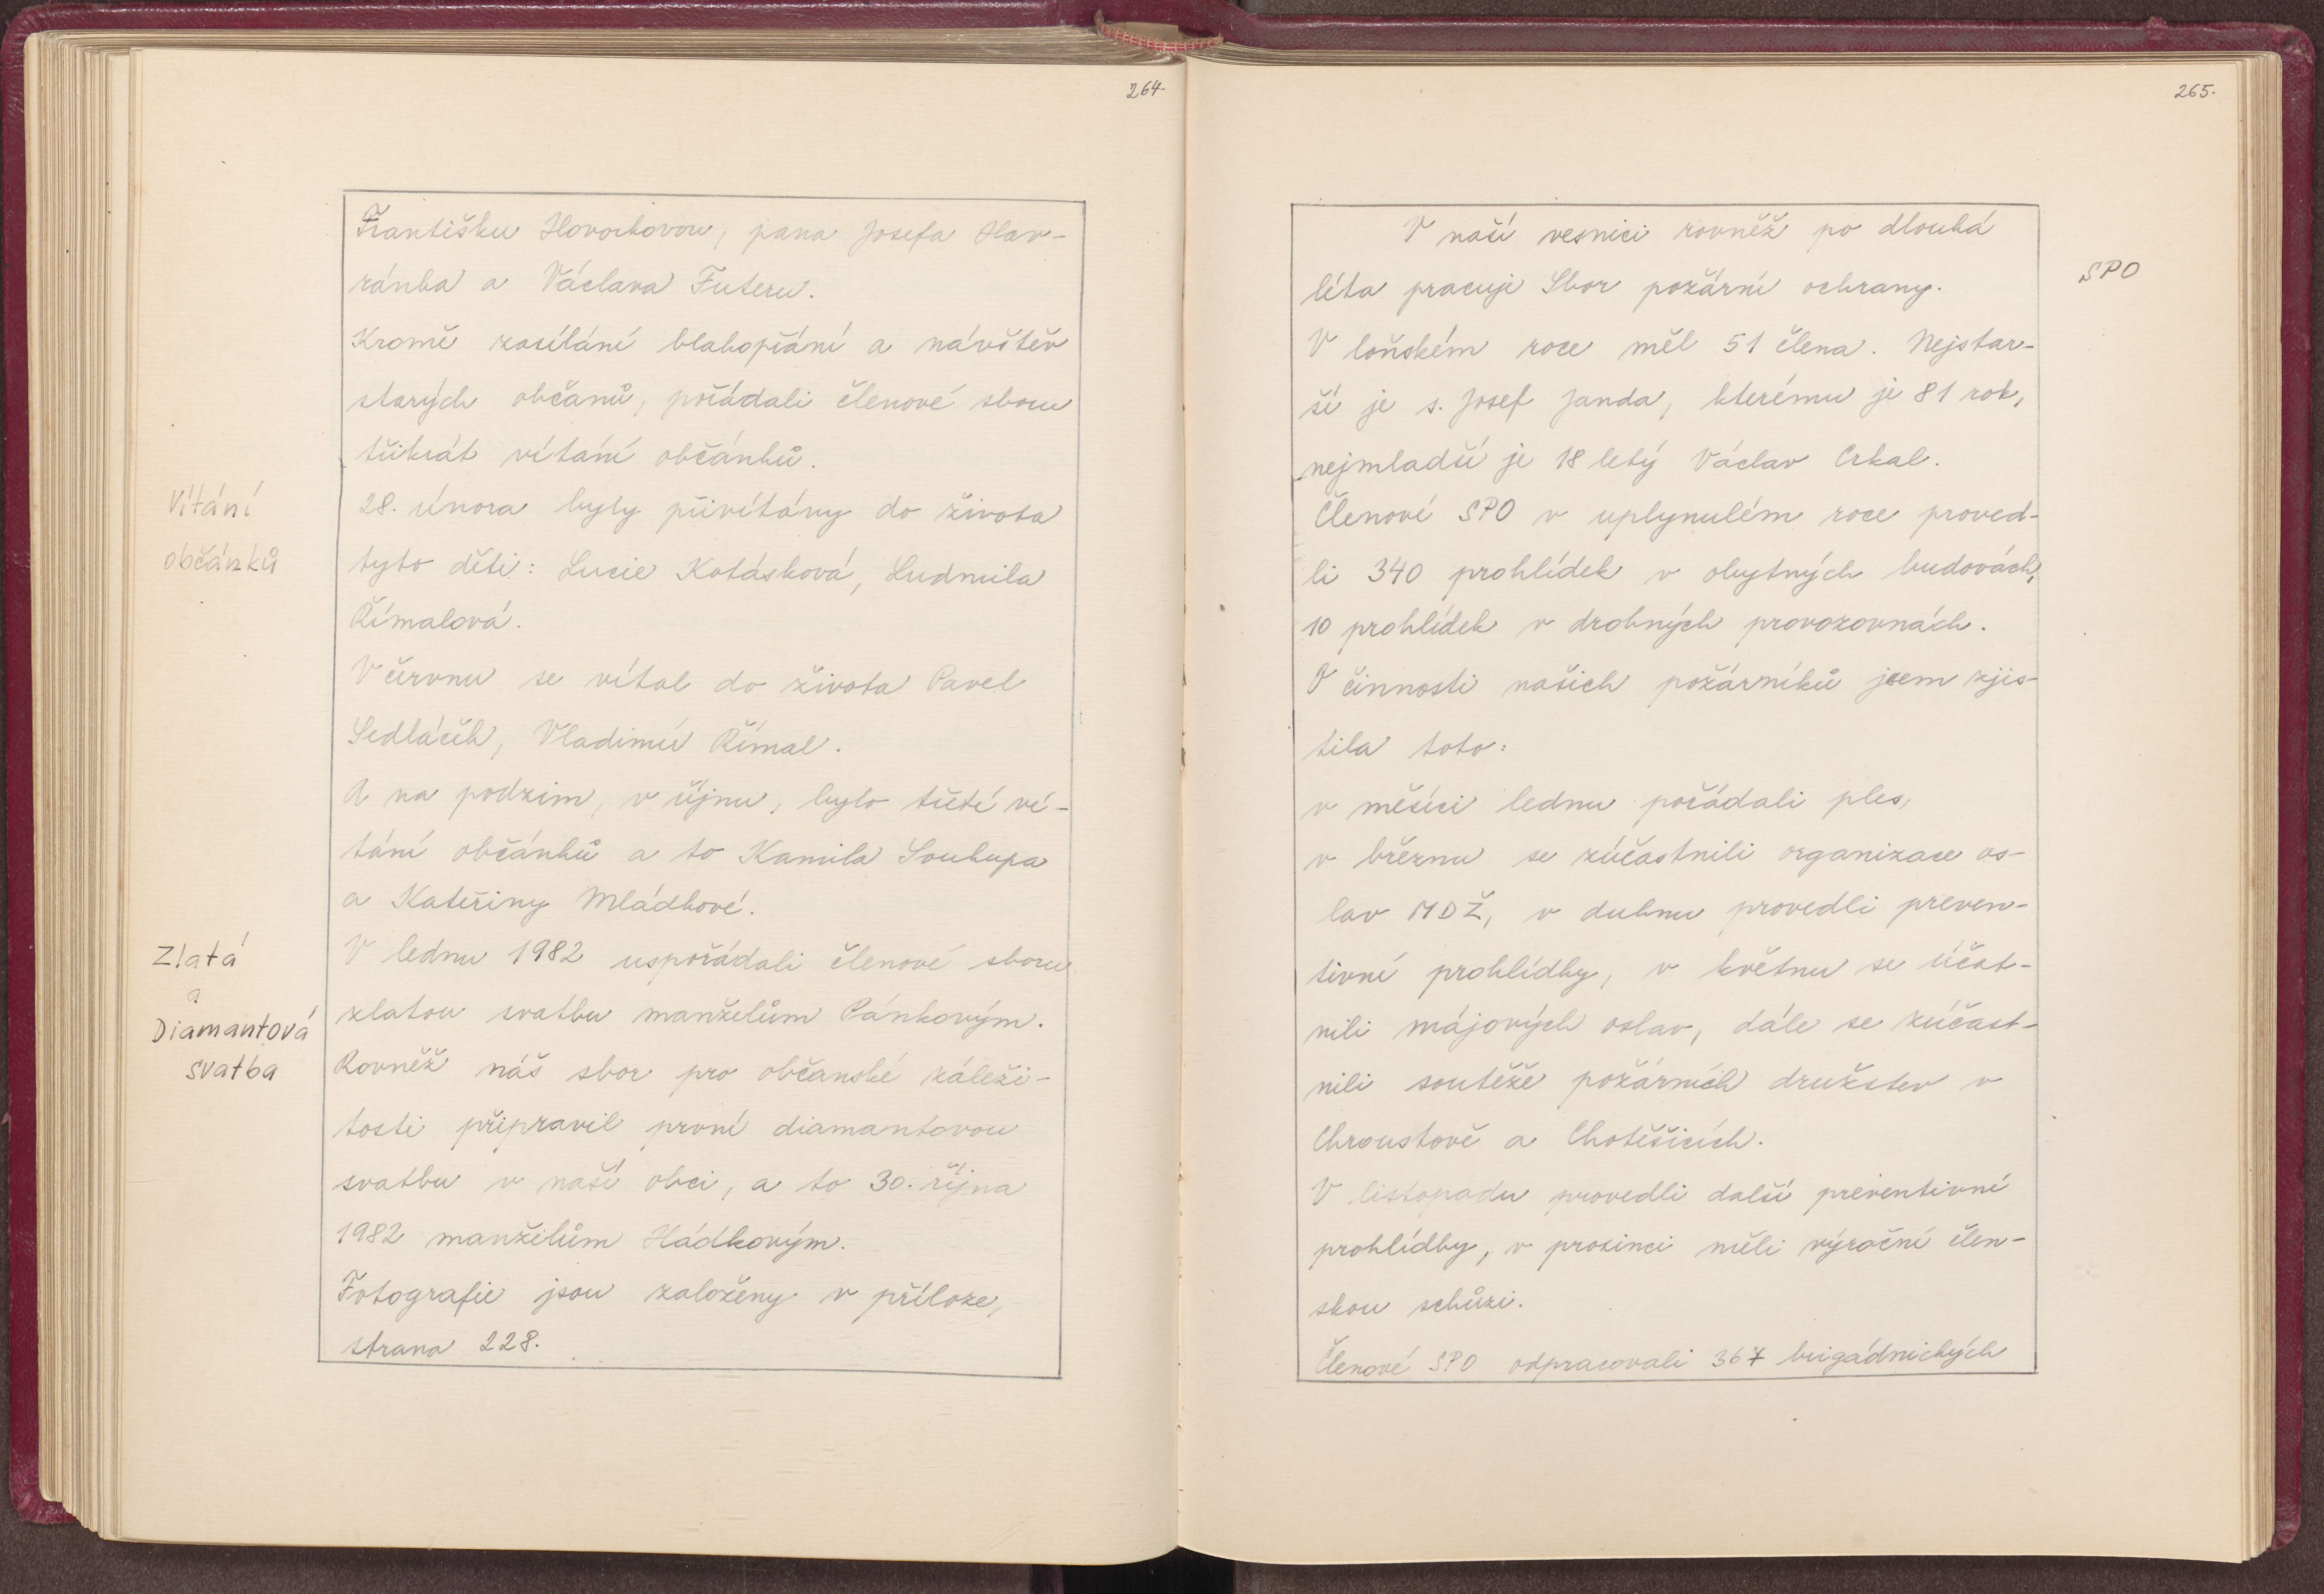 264.
Františku Hovorkovou, pana Josefa Hav-
ránka a Václava Futeru.
Kromě zasílání blahopřání a návštěv
starých občanů, pořádali členové sboru
třikrát vítání občánků.
Vítání
občánků
28. února byly přivítány do života
tyto děti: Lucie Kotásková, Ludmila
Římalová.
V červnu se vítal do života Pavel
Sedláček, Vladimír Římal.
A na podzim, v říjnu, bylo třetí ví-
tání občánků a to Kamila Soukupa
a Kateřiny Mládkové.
Zlatá
a
Diamantová
svatba
V lednu 1982 uspořádali členové sboru
zlatou svatbu manželům Pánkovým.
Rovněž náš sbor pro občanské záleži-
tosti připravil první diamantovou
svatbu v naší obci, a to 30. října
1982 manželům Hádkovým.
Fotografie jsou založeny v příloze,
strana 228.
265.
SPO
V naší vesnici rovněž po dlouhá
léta pracuje Sbor požární ochrany.
V loňském roce měl 51 člena. Nejstar-
ší je s. Josef Janda, kterému je 81 rok,
nejmladší je 18 letý Václav Crkal.
Členové SPO v uplynulém roce proved-
li 340 prohlídek v obytných budovách,
10 prohlídek v drobných provozovnách.
O činnosti našich požárníků jsem zjis-
tila toto:
v měsíci lednu pořádali ples,
v březnu se zúčastnili organizace os-
lav MDŽ, v dubnu provedli preven-
tivní prohlídky, v květnu se účast-
nili májových oslav, dále se zúčast-
nili soutěže požárních družstev v
Chroustově a Chotěšicích.
V listopadu provedli další preventivní
prohlídky, v prosinci měli výroční člen-
skou schůzi.
Členové SPO odpracovali 367 brigádnických